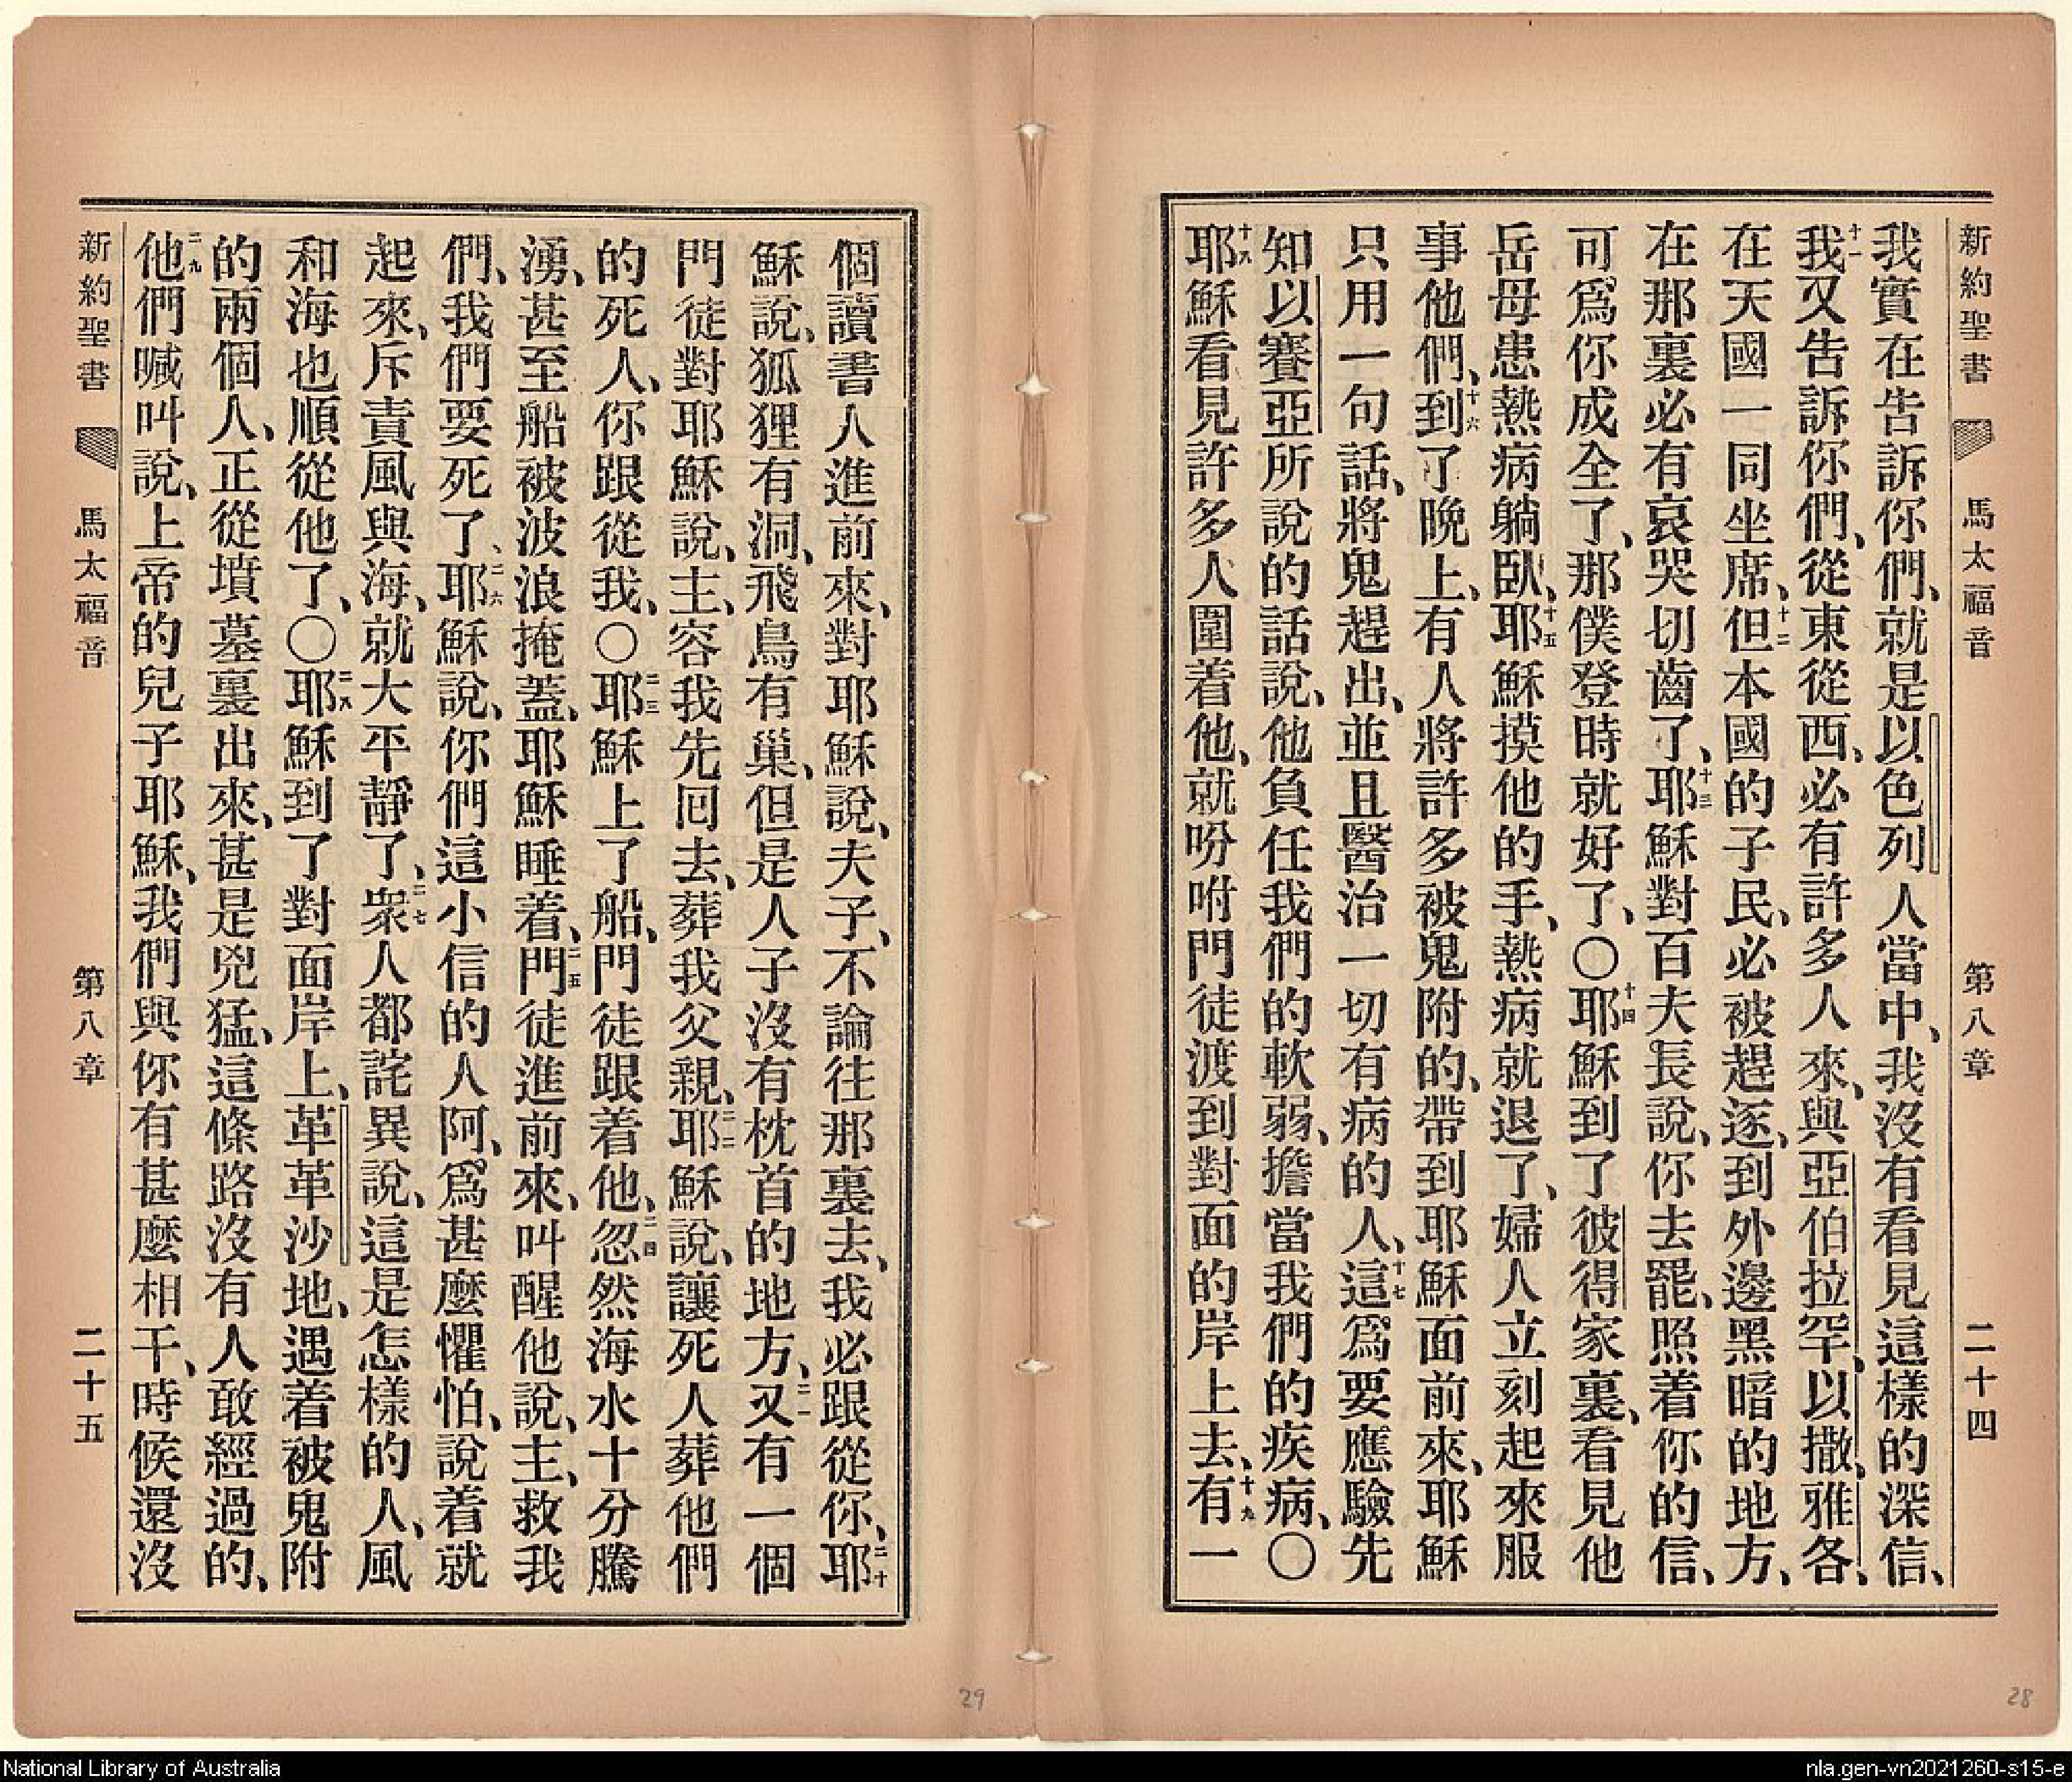 新約聖書 馬太福音 第八章 二十四
我實在告訴你們、就是以色列人當中、我沒有看見這樣的深信、
十一我又告訴你們、從東從西、必有許多人來、與亞伯拉罕、以撒、雅各、
在天國一同坐席、十二但本國的子民、必被趕逐、到外邊黑暗的地方、
在那裏必有哀哭切齒了、十三耶穌對百夫長說、你去罷、照着你的信、
可爲你成全了、那僕登時就好了、〇十四耶穌到了彼得家裏、看見他
岳母患熱病躺臥、十五耶穌摸他的手、熱病就退了、婦人立刻起來服
事他們、十六到了晚上、有人將許多被鬼附的、帶到耶穌面前來、耶穌
只用一句話、將鬼趕出、並且醫治一切有病的人、十七這爲要應驗先
知以賽亞所說的話說、他負任我們的軟弱、擔當我們的疾病、〇
十八耶穌看見許多人圍着他、就吩咐門徒渡到對面的岸上去、十九有一
個讀書人進前來、對耶穌說、夫子、不論往那裏去、我必跟從你、二十耶
穌說、狐狸有洞、飛鳥有巢、但是人子沒有枕首的地方、二一又有一個
門徒對耶穌說、主、容我先回去、葬我父親、二二耶穌說、讓死人葬他們
的死人、你跟從我、〇二三耶穌上了船、門徒跟着他、二四忽然海水十分騰
湧、甚至船被波浪掩蓋、耶穌睡着、二五門徒進前來、叫醒他說、主、救我
們、我們要死了、二六耶穌說、你們這小信的人阿、爲甚麼懼怕、說着就
起來、斥責風與海、就大平靜了、二七衆人都詫異說、這是怎樣的人、風
和海也順從他了、〇二八耶穌到了對面岸上、革革沙地、遇着被鬼附
的兩個人、正從墳墓裏出來、甚是兇猛、這條路沒有人敢經過的、
二九他們喊叫說、上帝的兒子耶穌、我們與你有甚麼相干、時候還沒
新約聖書 馬太福音 第八章 二十五
29
28
National Library of Australia
nla.gen-vn2021260-s15-e